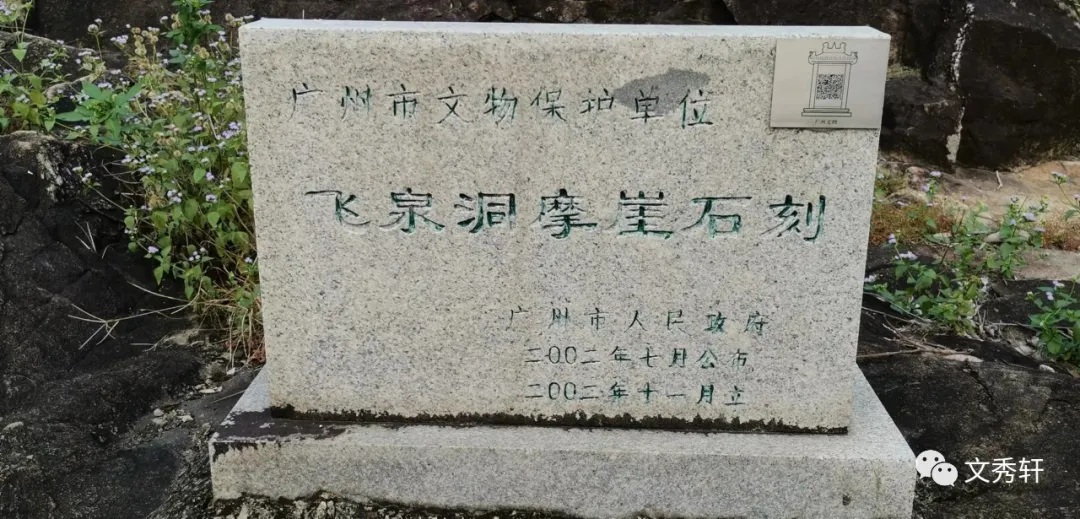 广州市文物保护单位
广州文物
飞泉洞摩崖石刻
广州市人民政府
二00二年七月公布
二00二年十一月立
文秀轩